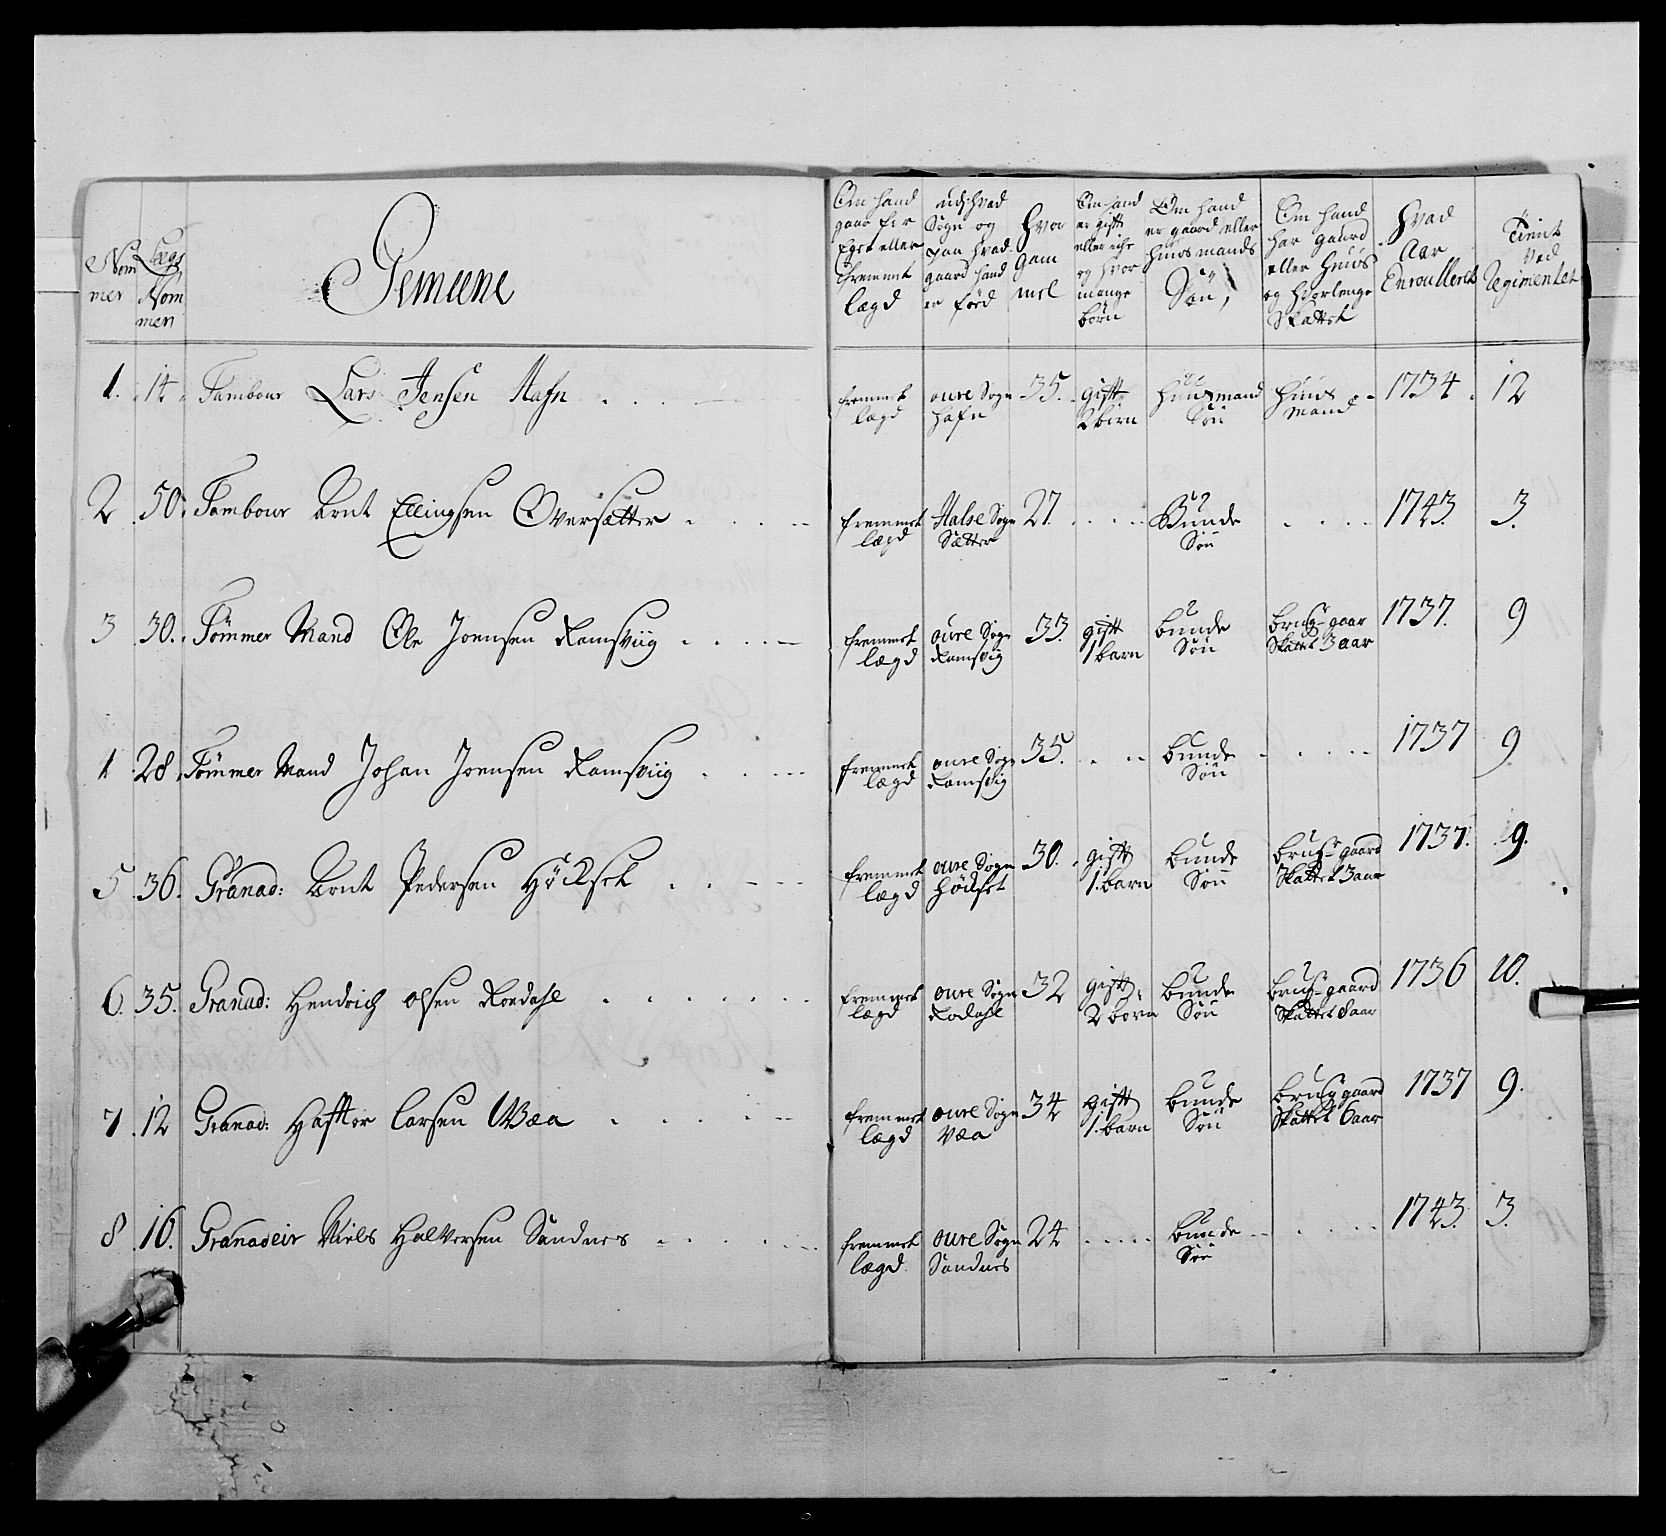 Nom
mer
Lægs
Nom
mer
Gemeene
Om hand
gaar for
Eget eller
fremmet
lægd
udj hvad
Sogn og
paa hvad
gaard hand
er föed
Hvor
Gam
mel
Om hand
er gift
eller ej
og hvor
mange
börn
Om hand
er gaard eller
huus mands
Sön,
Om hand
har gaard
eller huus
og hvorlenge
Skattet
Hvad
Aar
Enroulleret
Tient
ved
Regimentet
1. 14. Tambour Lars Jensen Hafn
fremmet lægd
oure Sogn Hafn
35.
gift 2 börn
huusmand Sön
huus mand
1734.
12
2 50. Tambour Bent Ellingsen Oversætter
fremmet lægd
Halse Sogn Sætter
27.
Bunde Sön
1743.
3.
3 30. Tömmer Mand Ole Joensen Ramsviig
fremmet lægd
oure Sogn Ramsvig
33.
gift 1 barn
bunde Sön
brug-gaar Skattet 3 aar
1737.
9
4 28. Tömmer Mand Johan Joensen Ramsviig
fremmet lægd
oure Sogn Ramsvig
35.
bunde Sön
1737
9
5. 36. Granad: Bent Pedersen Höckset
fremmet lægd
oure Sogn Höckset
30.
gift 1. barn
bunde Sön
brug-gaard Skattet 3 aar
1737.
9.
6. 35. Granad: Hendrich Olsen Roedahl
fremmet lægd
oure Sogn Rodahl
32
gift 2 börn
bunde Sön
brug-gaard Skattet 8 aar
1736
10.
7. 12 Granad: Hafftor Larsen Wæa
fremmet lægd
oure Sogn Væa
34
gift 1. barn
bunde Sön
brug gaard Skattet 6 aar
1737
9.
8. 16. Granadeir Niels Halversen Sandnes
fremmet lægd.
oure Sogn Sandnes
24
bunde Sön
1743.
3.